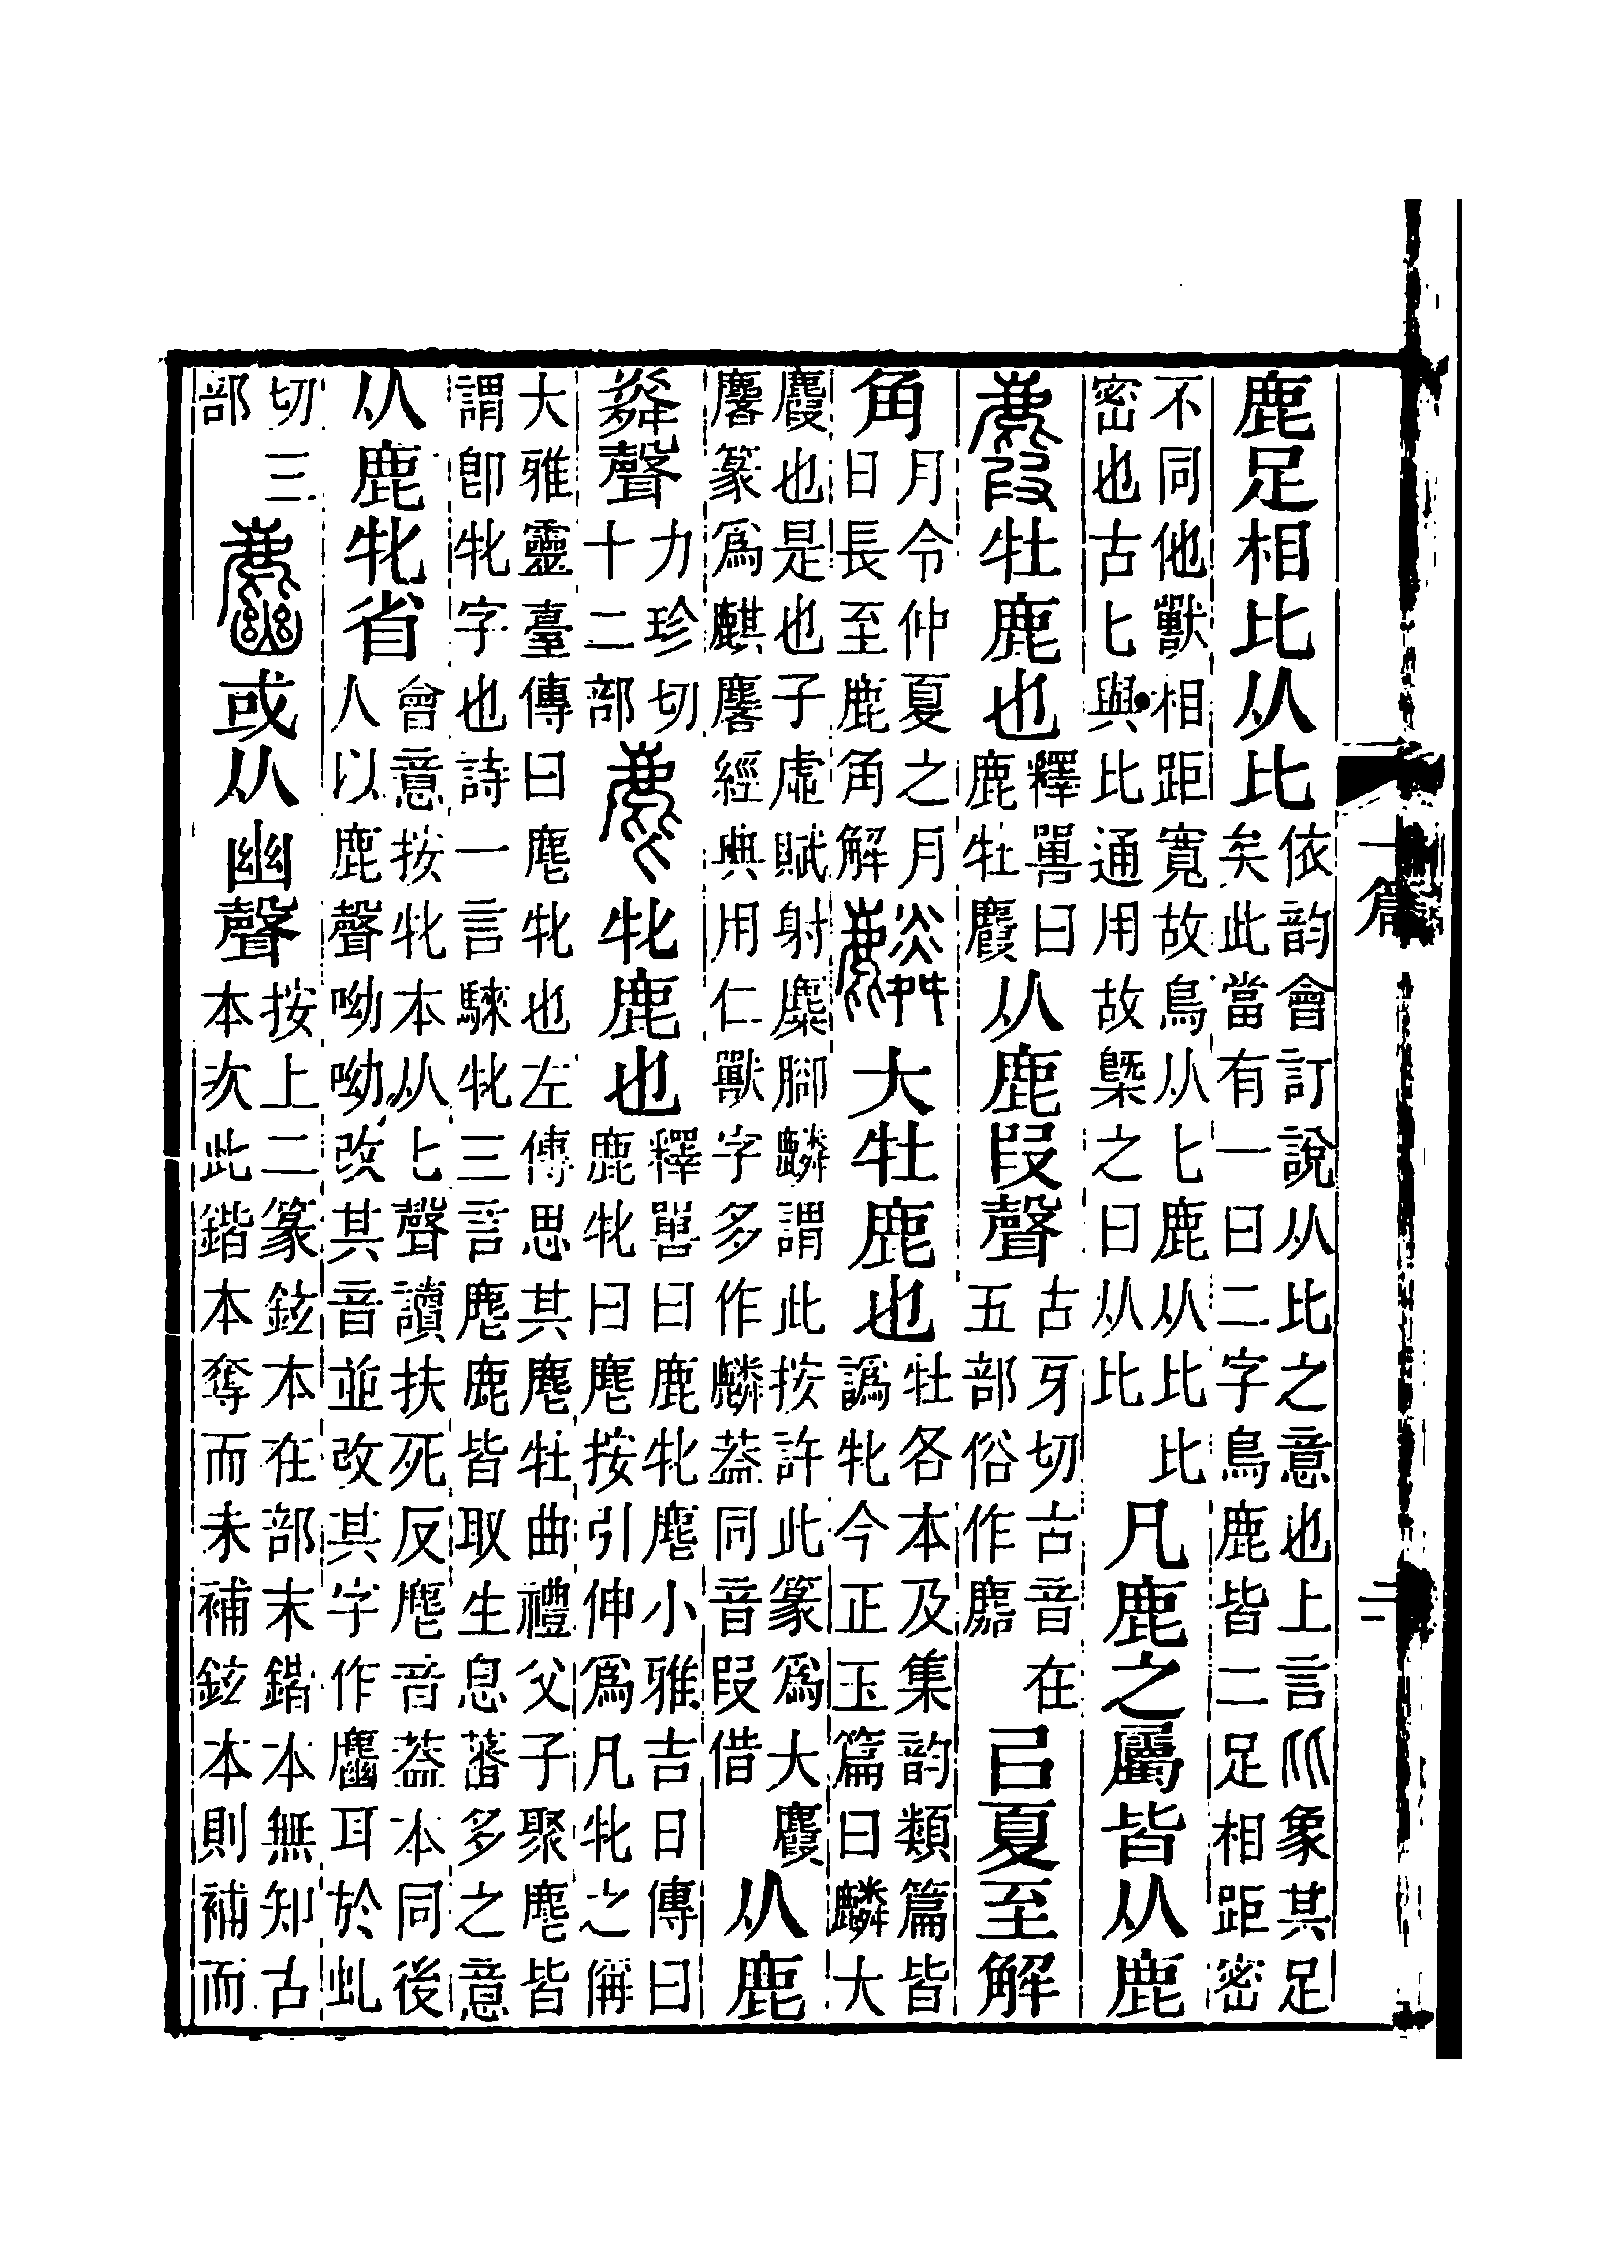 鹿足相比从比依韵會訂說从比之意也上言象其足矣此當有一曰二字鳥鹿皆二足相距密
不同他獸相距寬故鳥从匕鹿从比比密也古匕與比通用故槩之曰从比凡鹿之屬皆从鹿
麚牡鹿也釋嘼曰鹿牡麚从鹿叚聲古牙切古音在五部俗作㠯夏至解
角月令仲夏之月日長至鹿角解麟大牡鹿也牡各本及集韵類篇皆譌牝今正玉篇曰麟大
麚也是也子虛賦射麋腳麟謂此按許此篆爲大麚麐篆爲麒麐經典用仁獸字多作麟葢同音叚借从鹿
粦聲力珍切十二部麀牝鹿也釋嘼曰鹿牝麀小雅吉日傳曰鹿牝曰麀按引伸爲凡牝之偁
大雅靈臺傳曰麀牝也左傳思其麀牡曲禮父子聚麀皆謂卽牝字也詩一言騋牝三言麀鹿皆取生息蕃多之意
从鹿牝省會意按牝本从匕聲讀扶死反麀音葢本同後人以鹿聲呦呦改其音並改其字作𪋴耳於虯
切三部𪋴或从幽聲按上二篆鉉本在部末鍇本無知古本次此鍇本奪而未補鉉本則補而